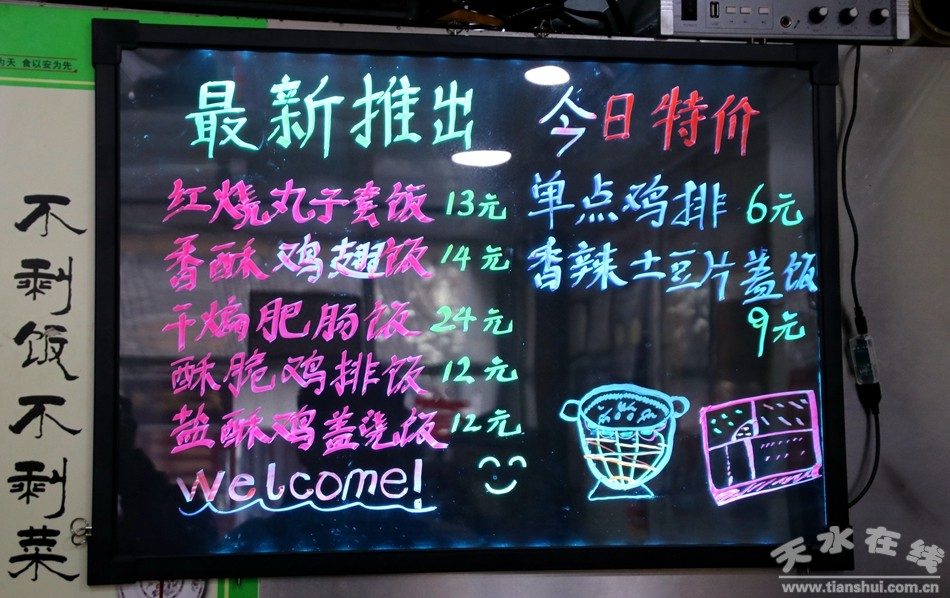 为天 食以安为先
不剩饭不剩菜
最新推出
红烧丸子套饭 13元
香酥鸡翅饭 14元
干煸肥肠饭 24元
酥脆鸡排饭 12元
盐酥鸡盖浇饭 12元
welcome!
今日特价
单点鸡排 6元
香辣土豆片盖饭
9元
天水在线
www.tianshui.com.cn